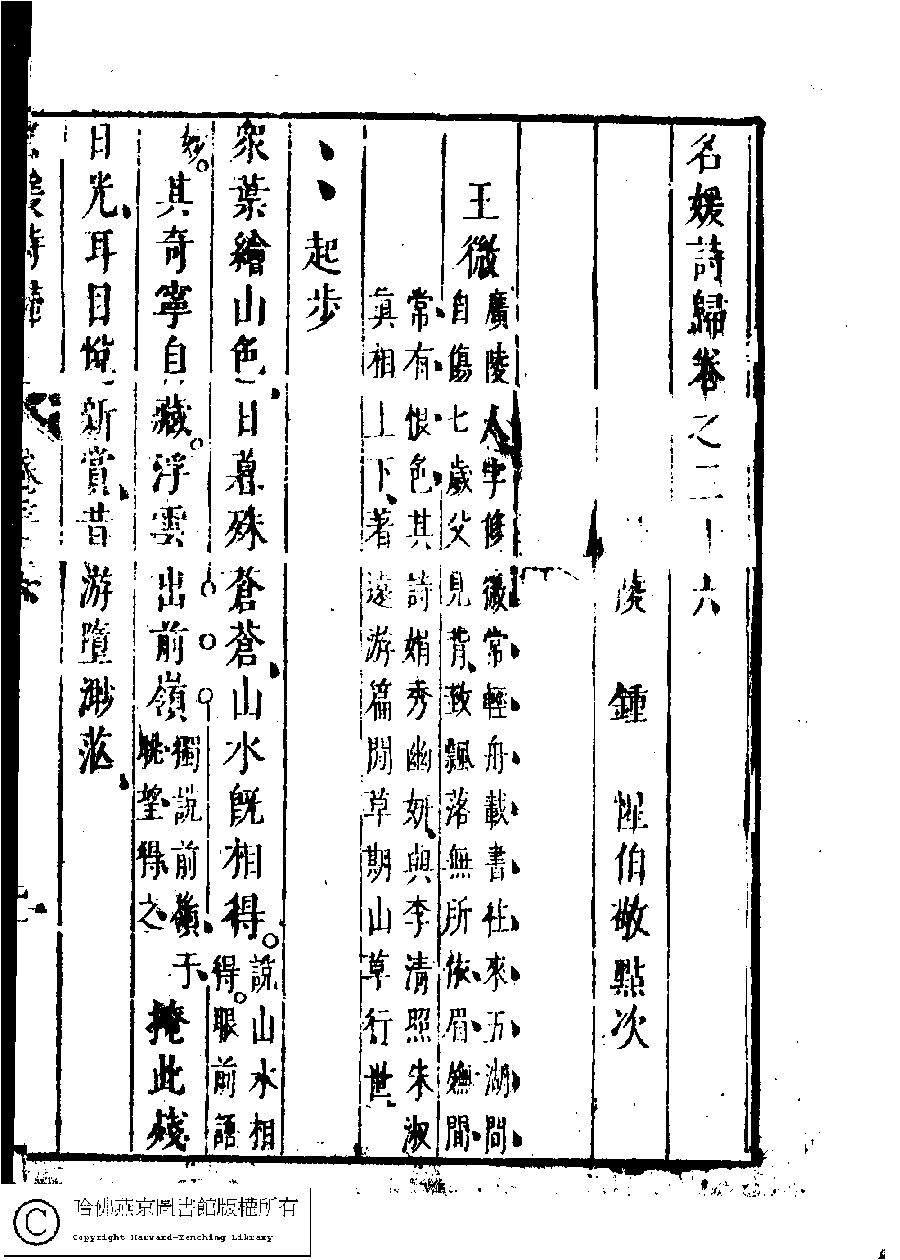 名媛詩歸卷之二十六
陵 鍾 惺伯敬點次
王微
廣陵人字修微常輕舟載書往來五湖間
自傷七歲父見背致飄落無所依眉嫵間
常有恨色其詩娟秀幽妍與李清照朱淑
真相上下著遠游篇閒草期山草行世
起步
衆葉繪山色日暮殊蒼蒼山水旣相得
說山水相
得得眼前語
妙
其奇寧自藏浮雲出前嶺
獨說前嶺于
眺望得之
掩此殘
日光耳目悅新賞昔游墮渺茫
媛詩歸
哈佛燕京圖書館版權所有
Copyright Harvard-Yenching Library